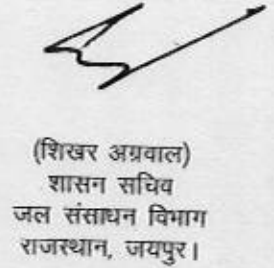 (शिखर अग्रवाल)
शासन सचिव
जल संसाधन विभाग
राजस्थान, जयपुर।